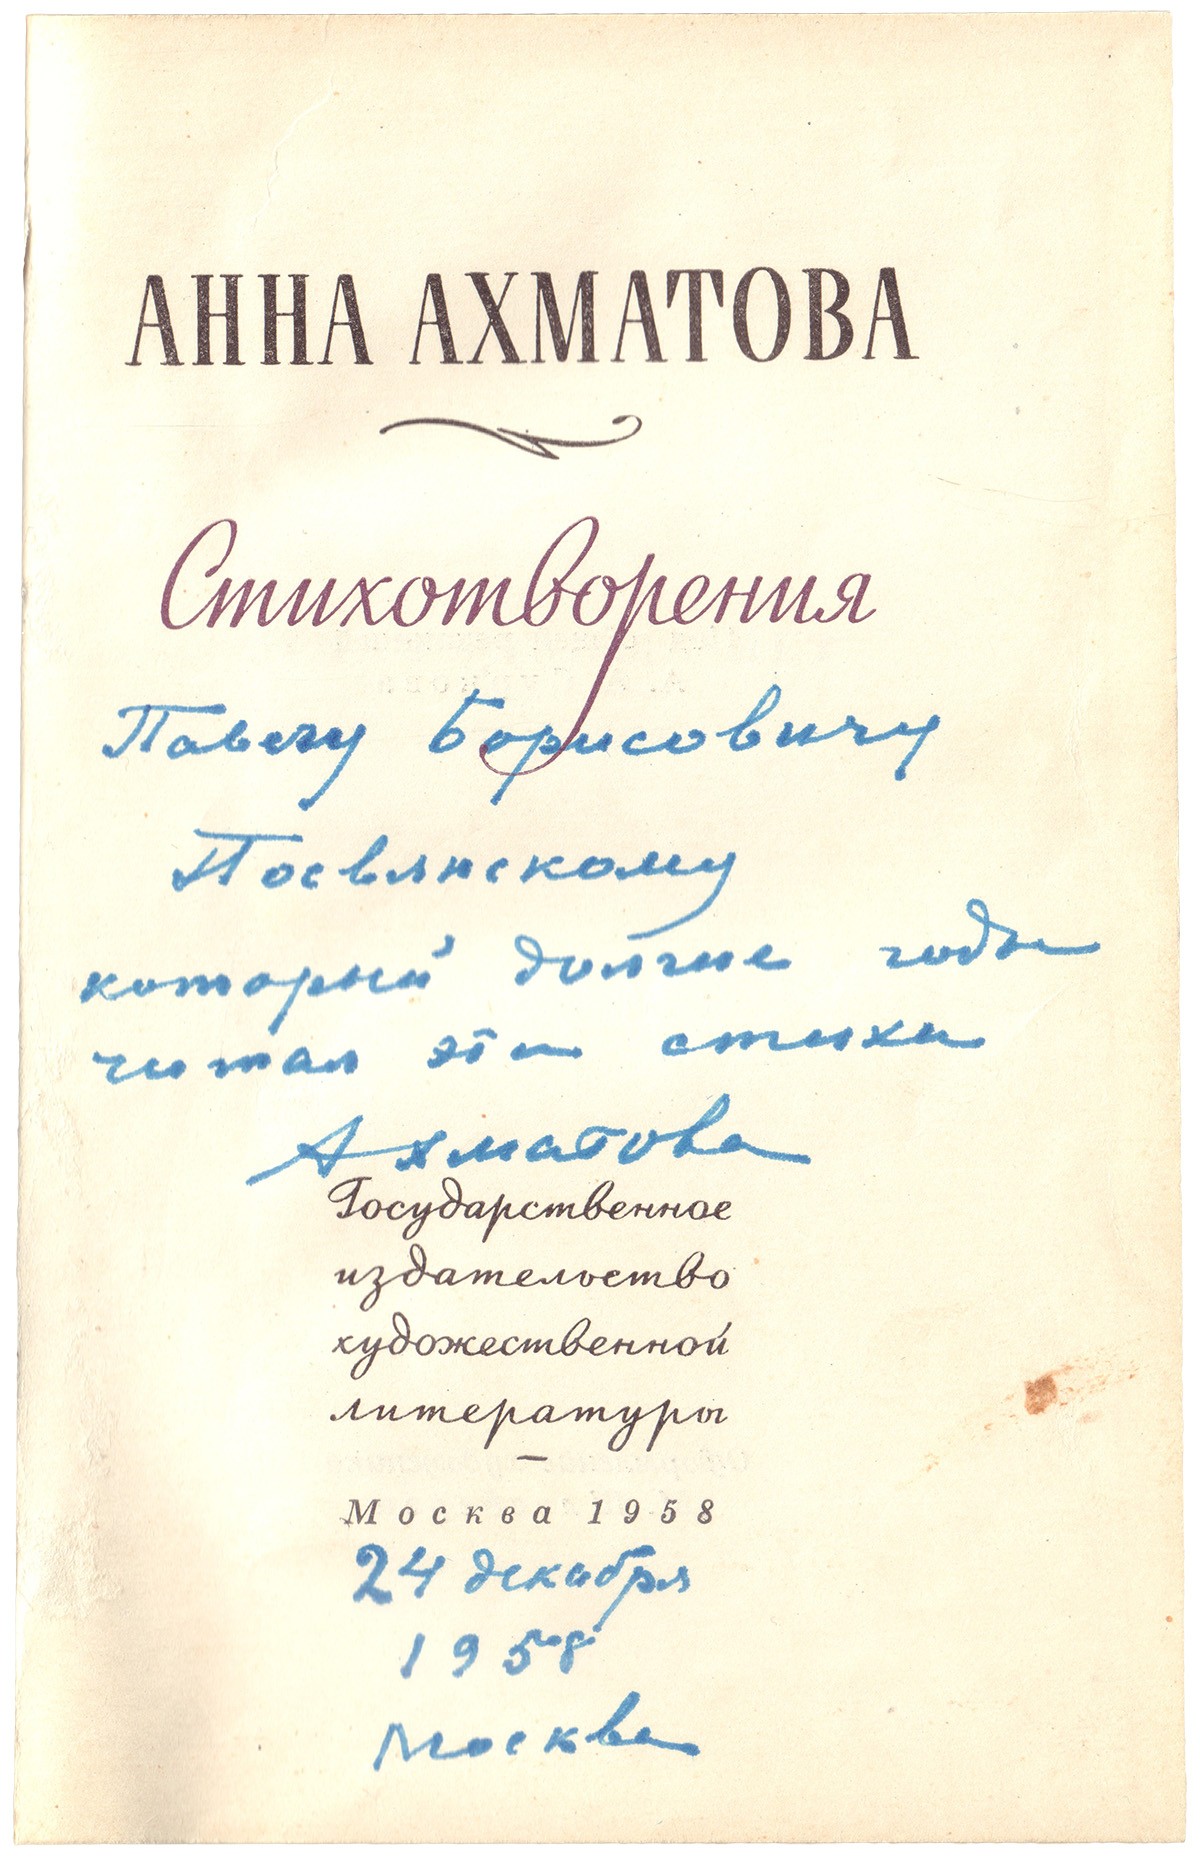 АННА АХМАТОВА
Стихотворения
Павлу Борисовичу
Посвянскому
который долгие годы
читал эти стихи
Ахматова
Государственное
издательство
художественной
литературы
Москва 1958
24 декабря
1958
Москва